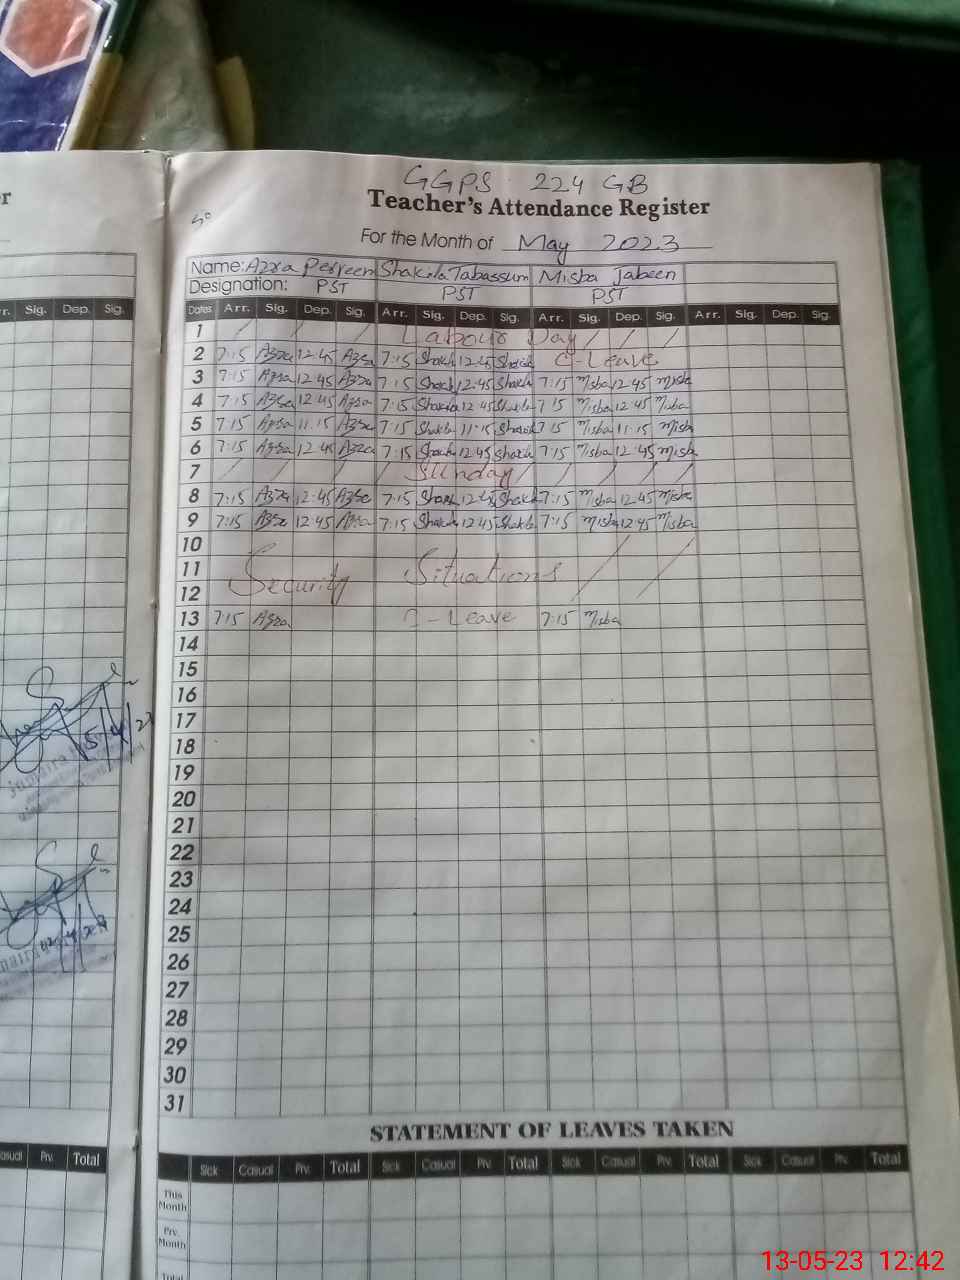 GGPS 224 GB
Teacher's Attendance Register
For the Month of May 2023
Name: Azra Perveen Shakila Tabassum Misba Jabeen
Designation: PST PST PST
r. Sig. Dep. Sig.
Dates Arr. Sig. Dep. Sig. Arr. Sig. Dep. Sig. Arr. Sig. Dep. Sig. Arr. Sig. Dep. Sig.
1 Labour Day
2 7:15 Azra 12:45 Azra 7:15 Shakila 12:45 Shakila C-Leave
3 7:15 Azra 12:45 Azra 7:15 Shakila 12:45 Shakila 7:15 Misba 12:45 Misba
4 7:15 Azra 12:45 Azra 7:15 Shakila 12:45 Shakila 7:15 Misba 12:45 Misba
5 7:15 Azra 11:15 Azra 7:15 Shakila 11:15 Shakila 7:15 Misba 11:15 Misba
6 7:15 Azra 12:45 Azra 7:15 Shakila 12:45 Shakila 7:15 Misba 12:45 Misba
7 Sunday
8 7:15 Azra 12:45 Azra 7:15 Shakila 12:45 Shakila 7:15 Misba 12:45 Misba
9 7:15 Azra 12:45 Azra 7:15 Shakila 12:45 Shakila 7:15 Misba 12:45 Misba
10
11 Security Situations
12
13 7:15 Azra C-Leave 7:15 Misba
14
15
16
17
18
19
20
21
22
23
24
25
26
27
28
29
30
31
STATEMENT OF LEAVES TAKEN
Casual Prv. Total
Sick Casual Prv. Total Sick Casual Prv. Total Sick Casual Prv. Total Sick Casual Prv. Total
This Month
Prv. Month
Total
13-05-23 12:42